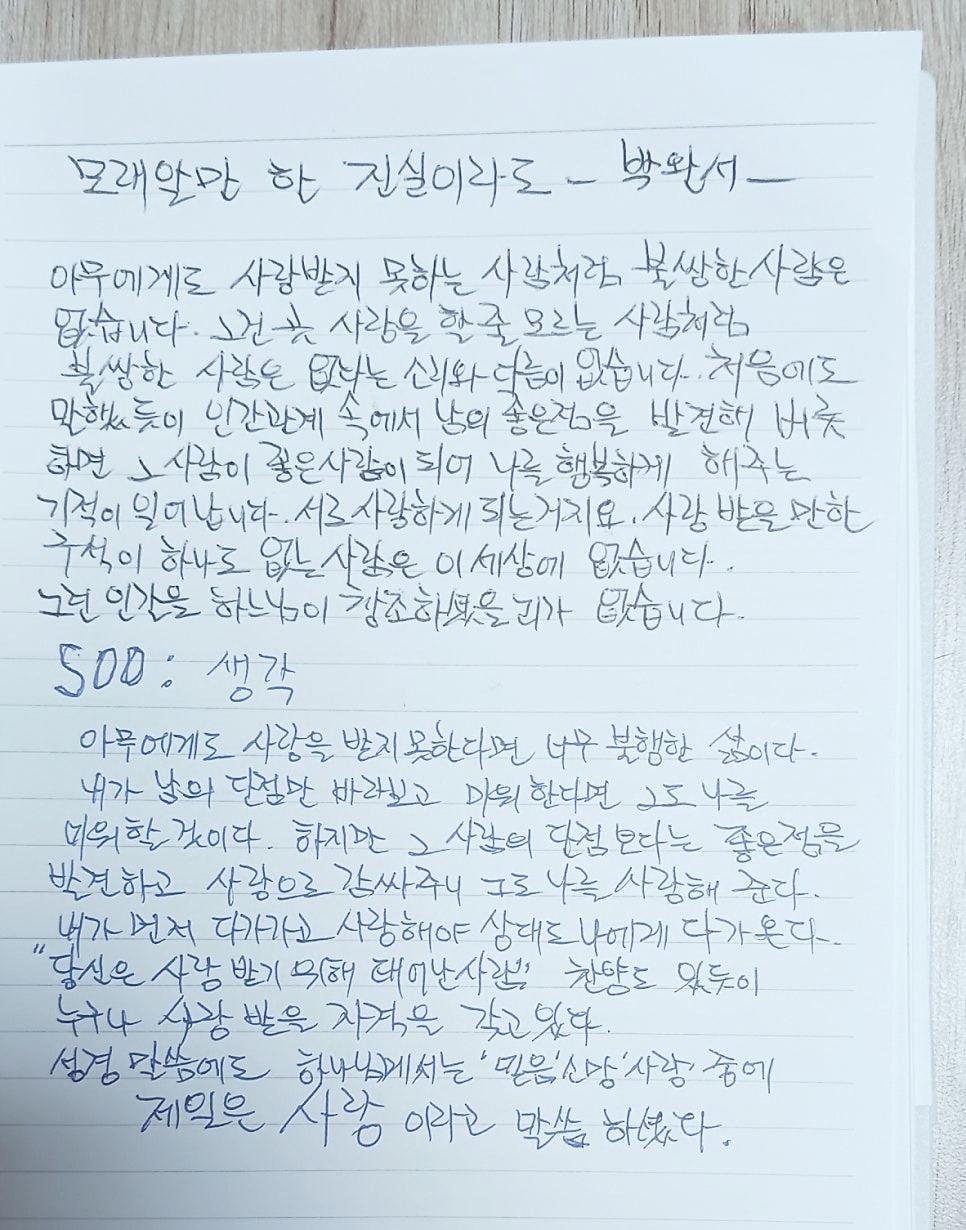 모래알만 한 진실이라도 - 박완서 -
아무에게도 사랑받지 못하는 사람처럼 불쌍한 사람은
없습니다. 그건 곧 사랑을 할 줄 모르는 사람처럼
불쌍한 사람은 없다는 소리와 다름이 없습니다. 처음에도
말했듯이 인간관계 속에서 남의 좋은점을 발견해 버릇
하면 그 사람이 좋은사람이 되어 나를 행복하게 해주는
기적이 일어납니다. 서로 사랑하게 되는거지요. 사랑 받을 만한
구석이 하나도 없는 사람은 이 세상에 없습니다.
그런 인간을 하느님이 창조하셨을 리가 없습니다.
SOO : 생각
아무에게도 사랑을 받지 못한다면 너무 불행한 삶이다.
내가 남의 단점만 바라보고 미워 한다면 그도 나를
미워할 것이다. 하지만 그 사람의 단점보다는 좋은점을
발견하고 사랑으로 감싸주니 그도 나를 사랑해 준다.
내가 먼저 다가가고 사랑해야 상대도 나에게 다가온다.
"당신은 사랑 받기 위해 태어난사람" 찬양도 있듯이
누구나 사랑 받을 자격을 갖고 있다.
성경 말씀에도 하나님께서는 '믿음' '소망' 사랑' 중에
제일은 사랑 이라고 말씀 하셨다.